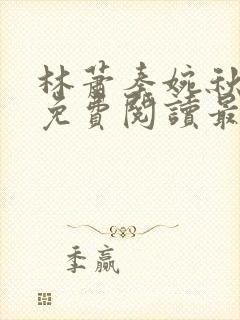 林萧秦婉秋
免費閱讀最
季赢